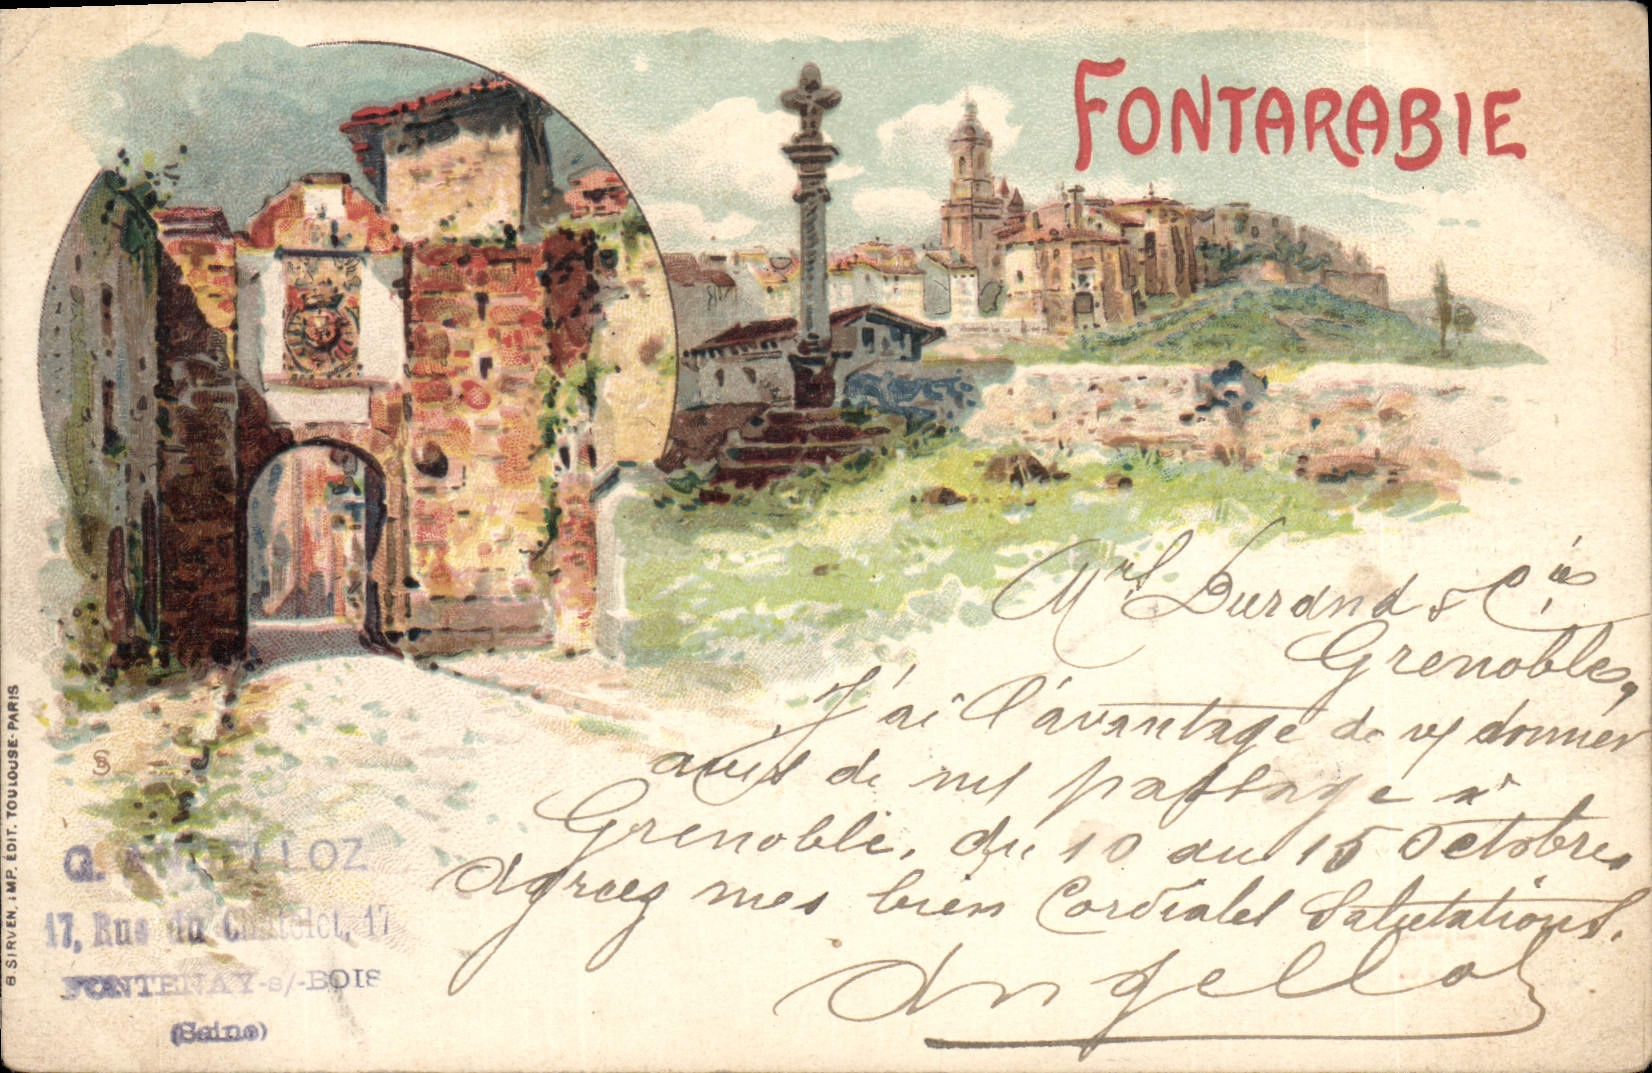 FONTARABIE
Mrs Durand & Cie
Grenoble,
J'ai l'avantage de vs donner
avis de mes passage à
Grenoble, du 10 au 15 Octobre,
Agréez mes bien Cordiales Salutations.
Angelloz
B. SIRVEN, IMP. ÉDIT. TOULOUSE-PARIS
G. ANGELLOZ
17, Rue du Chatelet, 17
FONTENAY-s/-BOIS
(Seine)